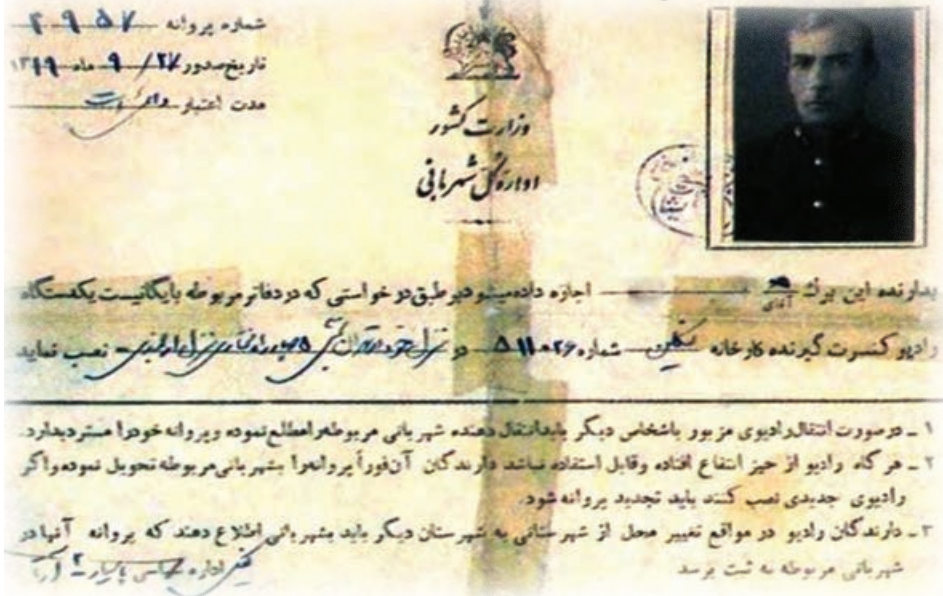 شماره پروانه ۲۹۵۷
تاریخ صدور ۲۷ / ۹ ماه ۱۳۱۹
مدت اعتبار
وزارت کشور
اداره کل شهربانی
بدارنده این برگ آقای اجازه داده میشود بر طبق درخواستی که در دفاتر مربوطه بایگانیست یکدستگاه
رادیو کنسرت گیرنده کارخانه شماره ۵۱۱۰۲۶ در نصب نماید
۱ ـ درصورت انتقال رادیوی مزبور باشخاص دیگر باید انتقال دهنده شهربانی مربوطه را مطلع نموده و پروانه خود را مسترد بدارد.
۲ ـ هر گاه رادیو از حیز انتفاع افتاده وقابل استفاده نباشد دارندگان آن فوراً پروانه را بشهربانی مربوطه تحویل نموده واگر
رادیوی جدیدی نصب کنند باید تجدید پروانه شود.
۳ ـ دارندگان رادیو در مواقع تغییر محل از شهرستانی به شهرستان دیگر باید بشهربانی اطلاع دهند که پروانه آنها در
شهربانی مربوطه به ثبت برسد
اداره سیاسی